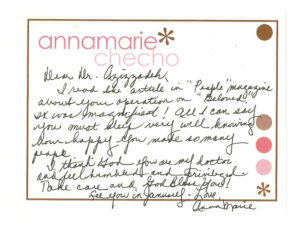 annamarie*
checho
Dear Dr. Azizzadeh,
I read the article in "People" magazine
about your operation on "Beloved"
It was magnificent! All I can say
you must sleep very well knowing
how happy you made so many
people.
I thank God you are my doctor
and feel humbled and privileged.
Take care and God Bless You!
See you in January - Love,
AnnaMarie